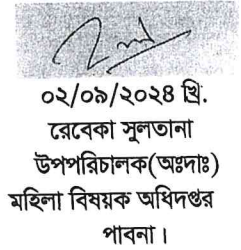 ০২/০৯/২০২৪ খ্রি.
রেবেকা সুলতানা
উপপরিচালক(অঃদাঃ)
মহিলা বিষয়ক অধিদপ্তর
পাবনা।